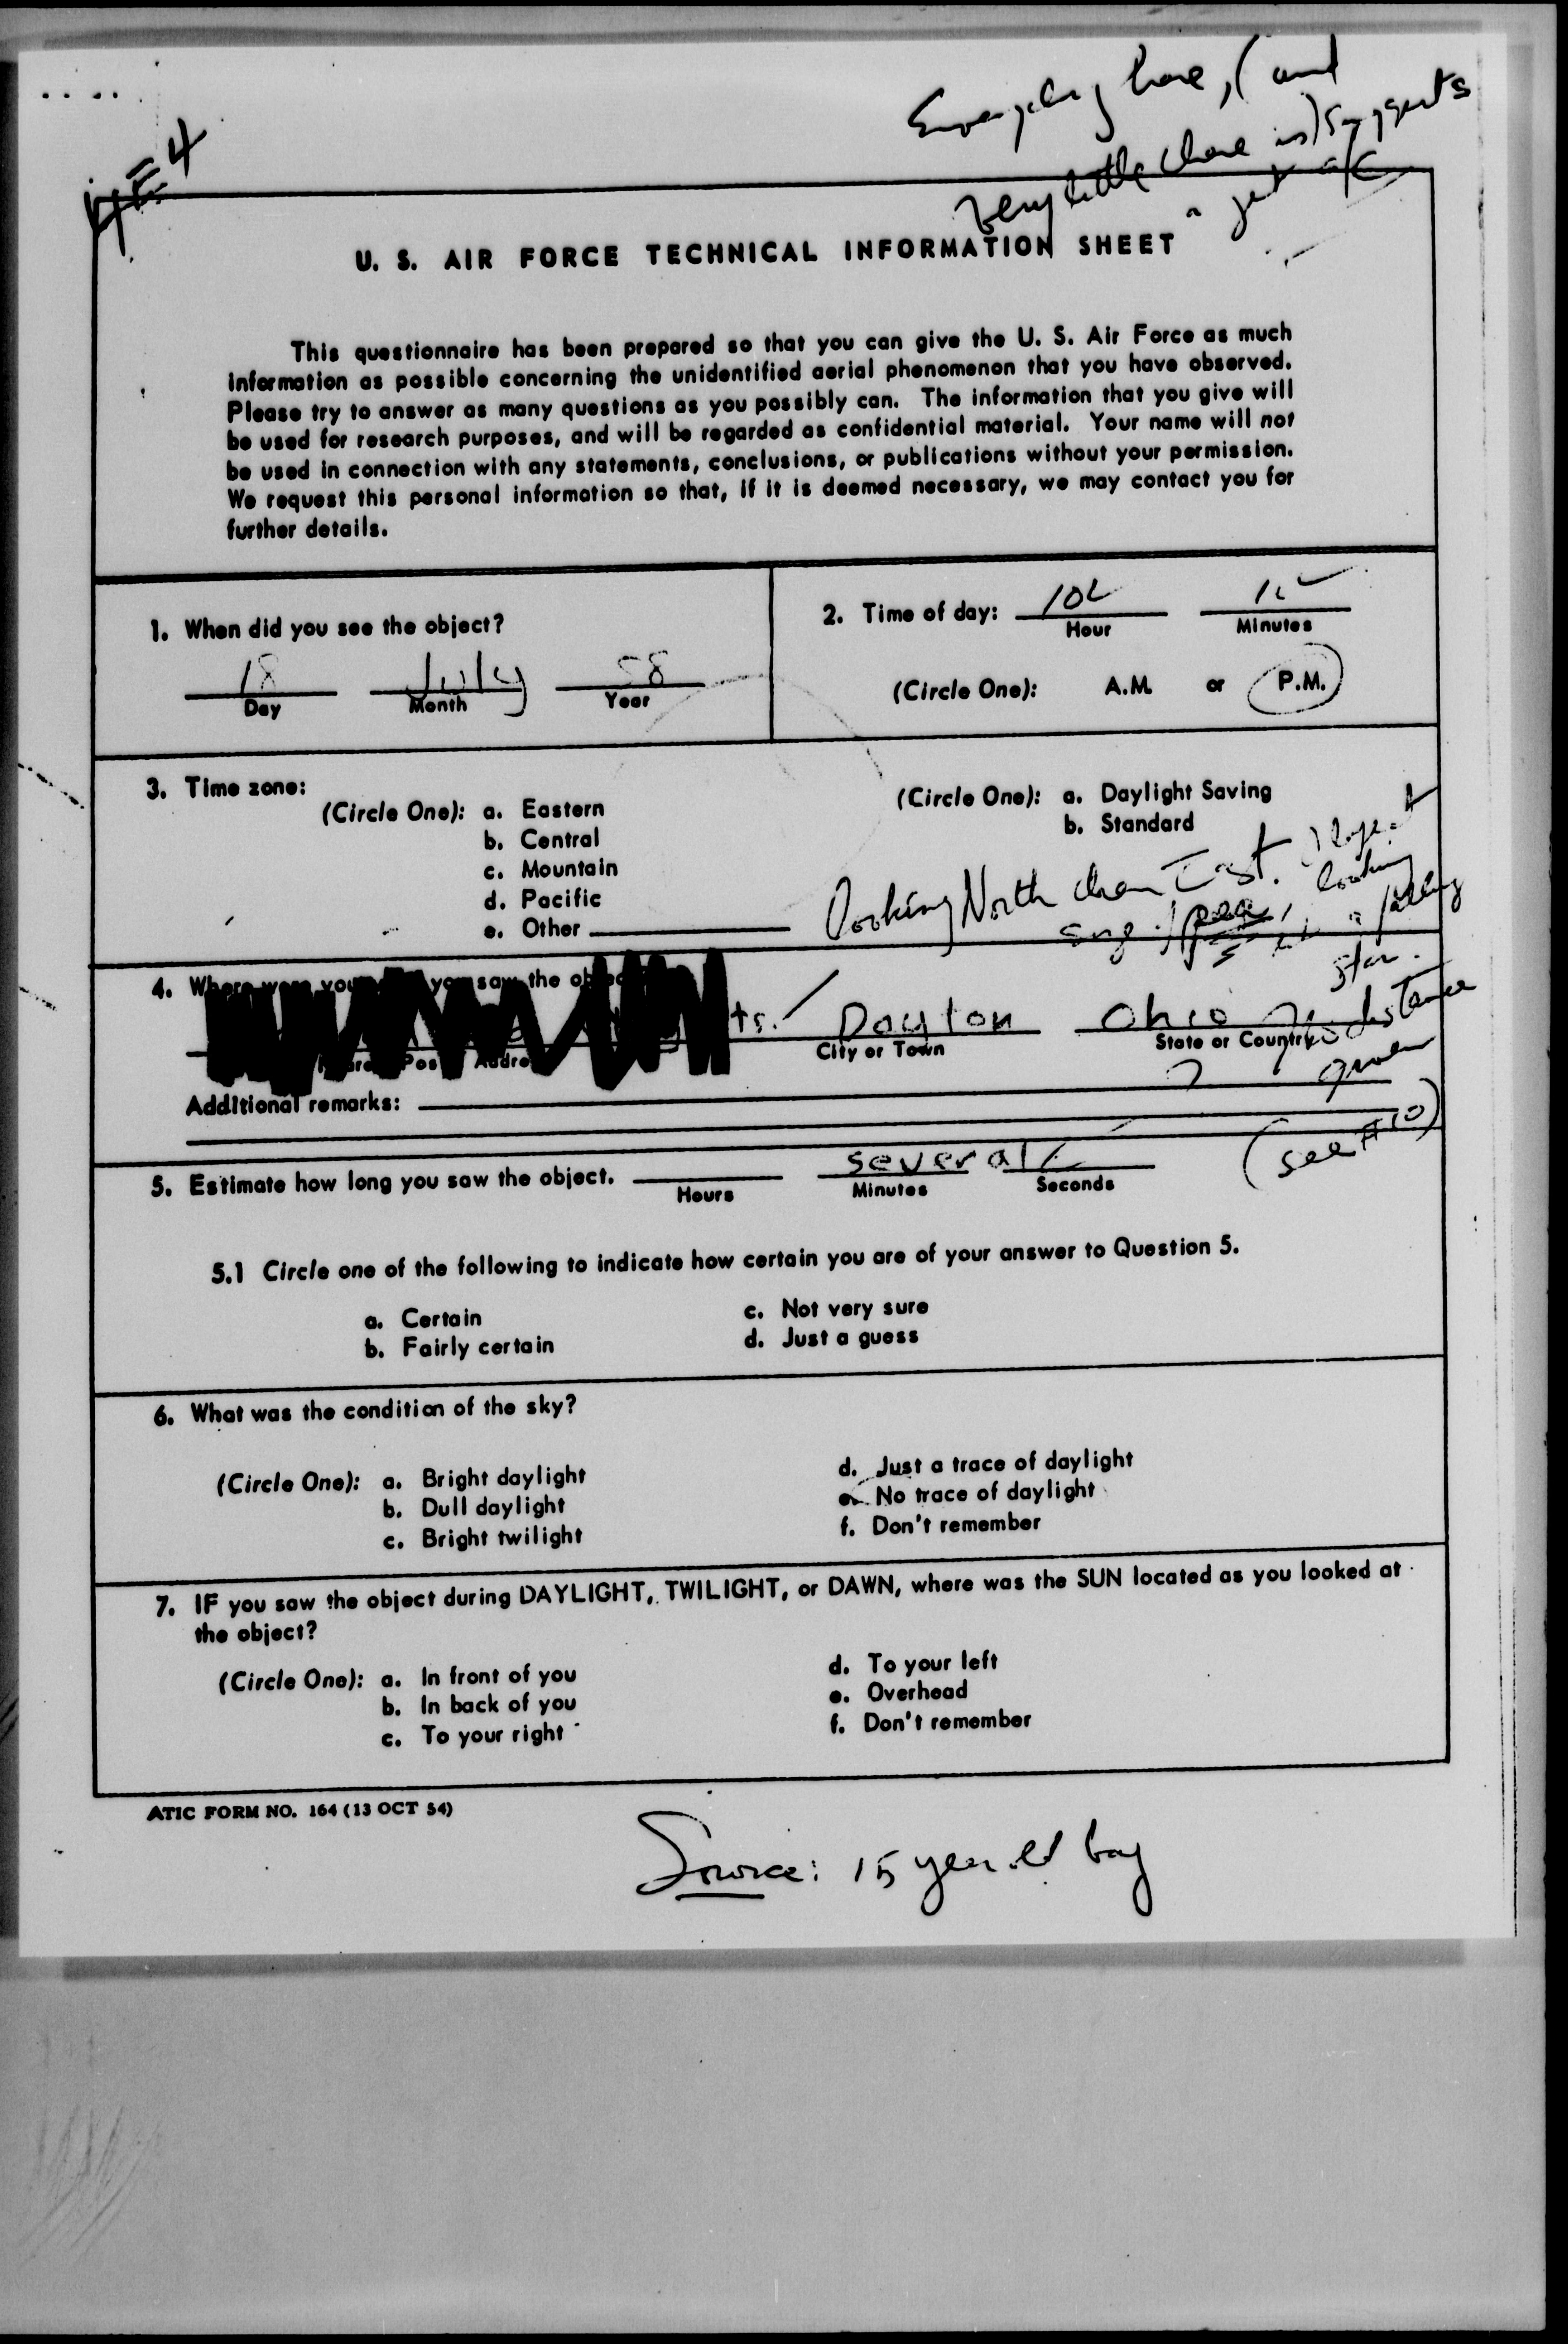 Everything here, (and
very little there is) suggests
a jet a/c
U. S. AIR FORCE TECHNICAL INFORMATION SHEET
This questionnaire has been prepared so that you can give the U. S. Air Force as much
information as possible concerning the unidentified aerial phenomenon that you have observed.
Please try to answer as many questions as you possibly can. The information that you give will
be used for research purposes, and will be regarded as confidential material. Your name will not
be used in connection with any statements, conclusions, or publications without your permission.
We request this personal information so that, if it is deemed necessary, we may contact you for
further details.
1. When did you see the object?
18 July 58
Day Month Year
2. Time of day:
Hour Minutes
(Circle One): A.M. or P.M.
3. Time zone:
(Circle One): a. Eastern
b. Central
c. Mountain
d. Pacific
e. Other
(Circle One): a. Daylight Saving
b. Standard
Looking North then East. Object
size of pea, looking
falling
star.
No distance
given
(see #10)
4. Where were you you saw the
ts. Dayton Ohio
City or Town State or Country
Additional remarks:
5. Estimate how long you saw the object. several
Hours Minutes Seconds
5.1 Circle one of the following to indicate how certain you are of your answer to Question 5.
a. Certain
b. Fairly certain
c. Not very sure
d. Just a guess
6. What was the condition of the sky?
(Circle One): a. Bright daylight
b. Dull daylight
c. Bright twilight
d. Just a trace of daylight
e. No trace of daylight
f. Don't remember
7. IF you saw the object during DAYLIGHT, TWILIGHT, or DAWN, where was the SUN located as you looked at
the object?
(Circle One): a. In front of you
b. In back of you
c. To your right
d. To your left
e. Overhead
f. Don't remember
ATIC FORM NO. 164 (13 OCT 54)
Source: 15 year old boy